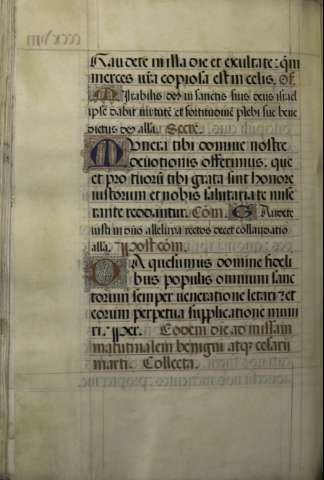 Gaudete in illa die et exultate: qm̄
merces ūra copiosa est in celis. Of.
Mirabilis deꝰ in sanctis suis deus israel
ipse dabit uirtutē et fortitudinem plebi sue bene
dictus deꝰ alla. Secre.
Munera tibi domine nostre
deuotionis offerimus: que
et pro tuorū tibi grata sint honore
iustorum et nobis salutaria te mise
rante reddantur. Cōm. Gaudete
iusti in dnō alleluia rectos decet collaudatio
alla. Post cōm.
Da quesumus domine fideli
bus populis omnium sanc
torum semper ueneratione letari: et
eorum perpetua supplicatione muni
ri. per. Eodem die ad missam
matutinalem benigni atqꝫ cesarii
marti. Collecta.